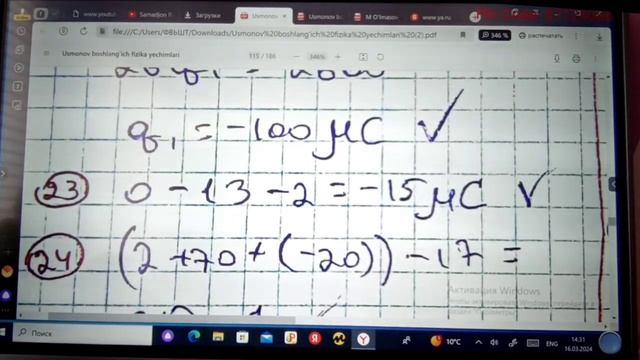 www.youtut
Samadjon
Загрузки
Usmonov
Usmonov bo
M O'lmasov
www.ya.ru
file:///C:/Users/ФВЫШТ/Downloads/Usmonov%20boshlang'ich%20fizika%20yechimlari%20(2).pdf
346 %
распечатать
Usmonov boshlang'ich fizika yechimlari
115 / 186
346%
q₁ = -100 μC ✓
23 0 - 13 - 2 = -15 μC ✓
24 (2 + 70 + (-20)) - 17 =
Активация Windows
Поиск
10°C
ENG
14:31
16.03.2024